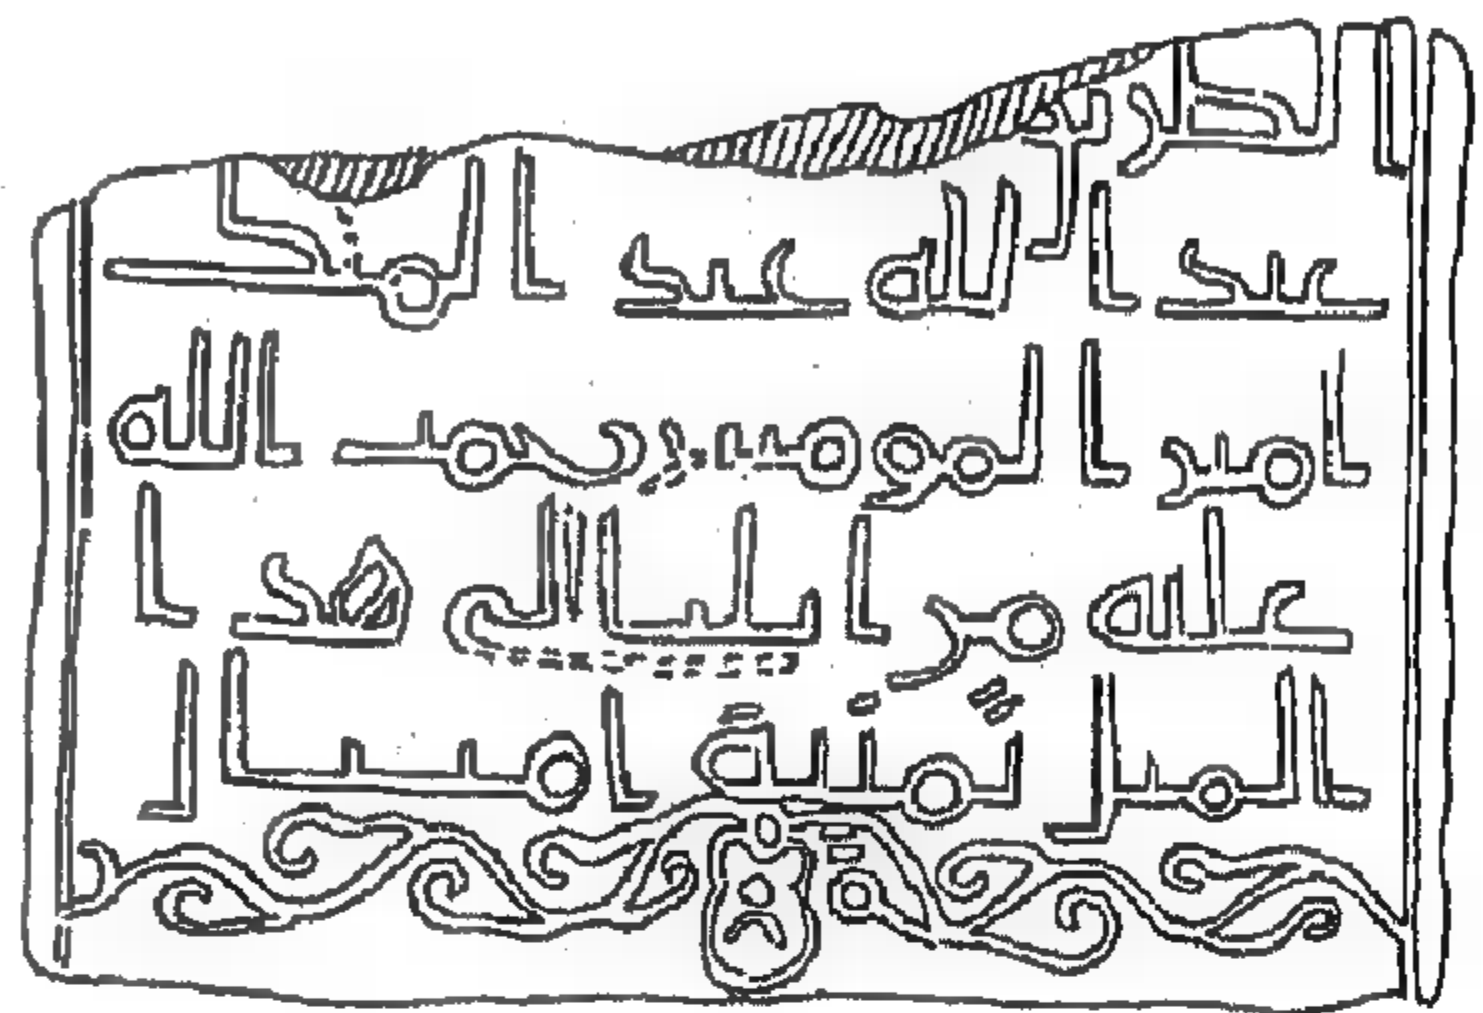 الطر
عبد الله عبد الملك
امير المومنين رحمت الله
عليه من ايليا الى هذا
الميل ثمنية اميال